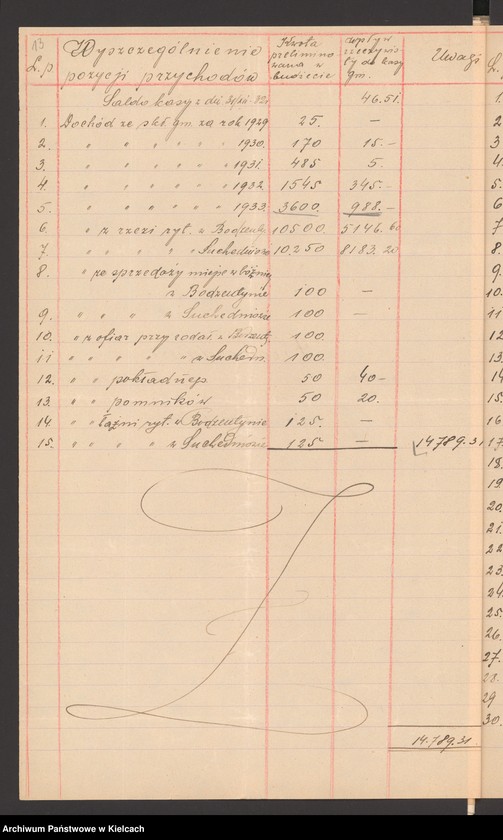 13
L.p. Wyszczególnienie pozycji przychodów Kwota preliminowana w budżecie wpływ rzeczywisty do kasy gm. Uwagi L.
Saldo kasy z dn. 46.51. 1.
1. Dochód ze skł. gm. za rok 1929 25. — 2
2. " " " " " " 1930. 170 15.- 3
3. " " " " " " 1931. 485 5. 4
4 " " " " " " 1932. 1545 345.- 5.
5. " " " " " " 1933. 3600. 988.- 6
6. " z rzezi ryt. w Bodzentyn. 10500. 5146.60 7
7. " " " " " Suchedniowie 10.250 8183.20 8.
8. " ze sprzedaży miejsc w bóżnicy 9.
w Bodzentynie 100 — 10.
9. " " " " w Suchedniowie 100 — 11
10. " z ofiar przy rodał. w Bodzent. 100 12
11 " " " " " w Suchedn. 100. 13.
12. " " pokładnego 50 40- 14
13. " " pomników 50 20. 15.
14. " " łaźni ryt. w Bodzentynie 125. — 16
15. " " " " w Suchedniowie 125 — 14789.31 17
18.
19.
20.
21.
22
23.
24
25.
26.
27.
28.
29
30.
14.789.31
Archiwum Państwowe w Kielcach